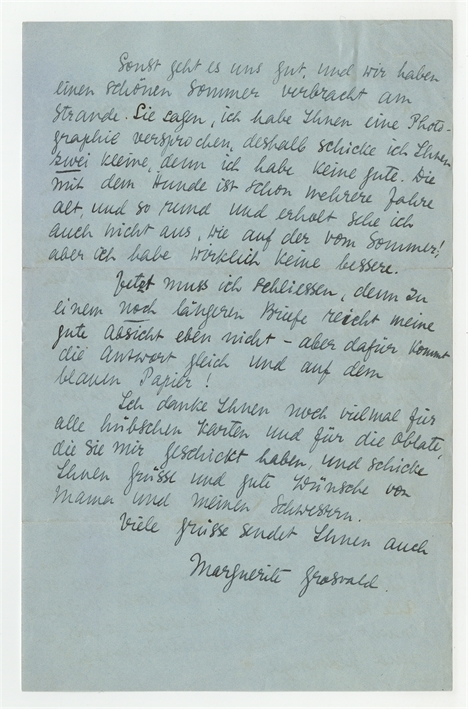 Sonst geht es uns gut, und wir haben
einen schönen Sommer verbracht am
Strande. Sie sagen, ich habe Ihnen eine Photo-
graphie versprochen, deshalb schicke ich Ihnen
zwei kleine, denn ich habe keine gute. Die
mit dem Hunde ist schon mehrere Jahre
alt, und so rund und erholt sehe ich
auch nicht aus, wie auf der vom Sommer!
aber ich habe wirklich keine bessere.
Jetzt muss ich schliessen, denn zu
einem noch längeren Briefe reicht meine
gute Absicht eben nicht – aber dafür kommt
die Antwort gleich und auf dem
blauen Papier!
Ich danke Ihnen noch vielmal für
alle hübschen Karten und für die Oblate,
die Sie mir geschickt haben, und schicke
Ihnen Grüsse und gute Wünsche von
Mama und meinen Schwestern.
Viele Grüsse sendet Ihnen auch
Marguerite Grosvald.